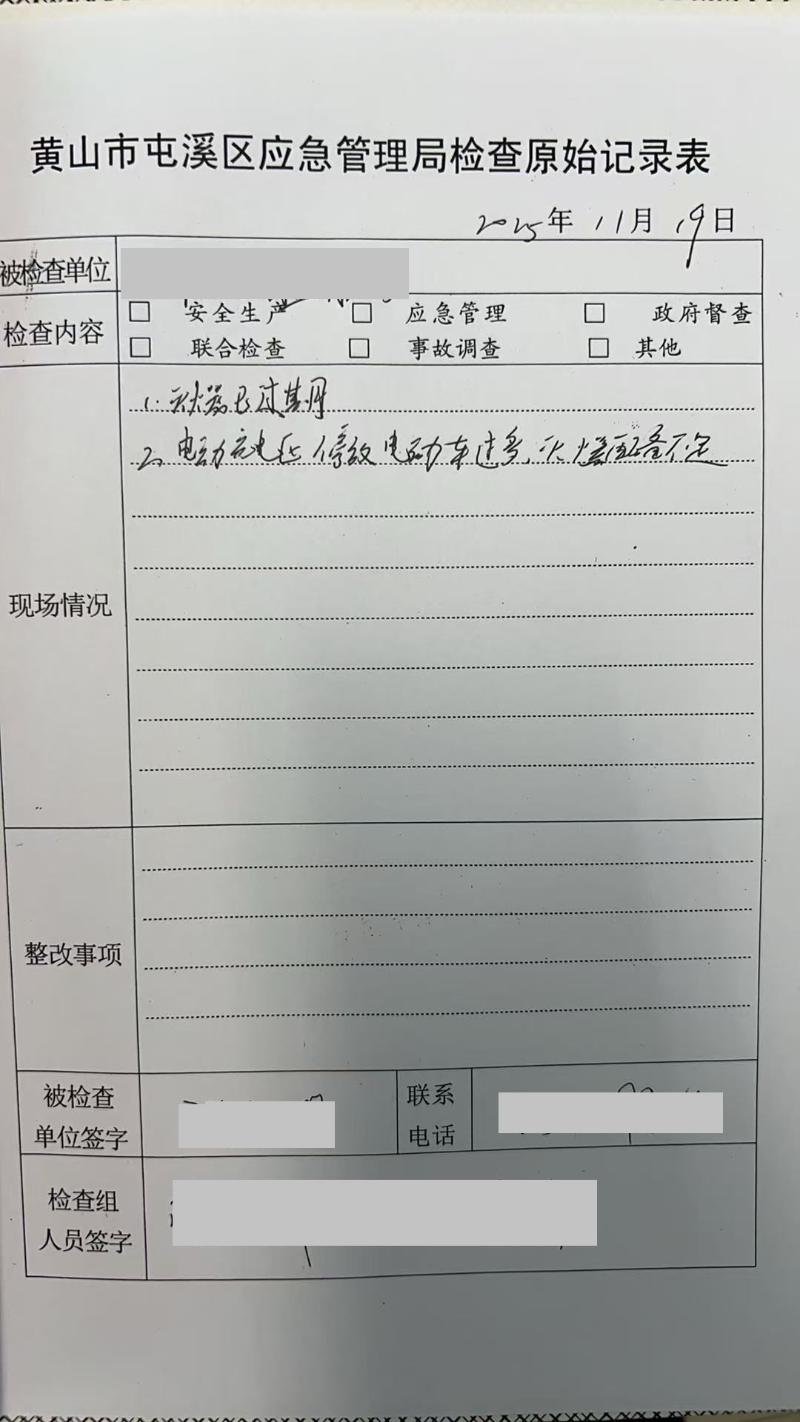 黄山市屯溪区应急管理局检查原始记录表
2025年 11月 19日
被检查单位
检查内容
□ 安全生产 □ 应急管理 □ 政府督查
□ 联合检查 □ 事故调查 □ 其他
现场情况
1. 灭火器已过其月
2. 电动充电 停放电动车过多,灭火器配备不足
整改事项
被检查
单位签字
联系
电话
检查组
人员签字